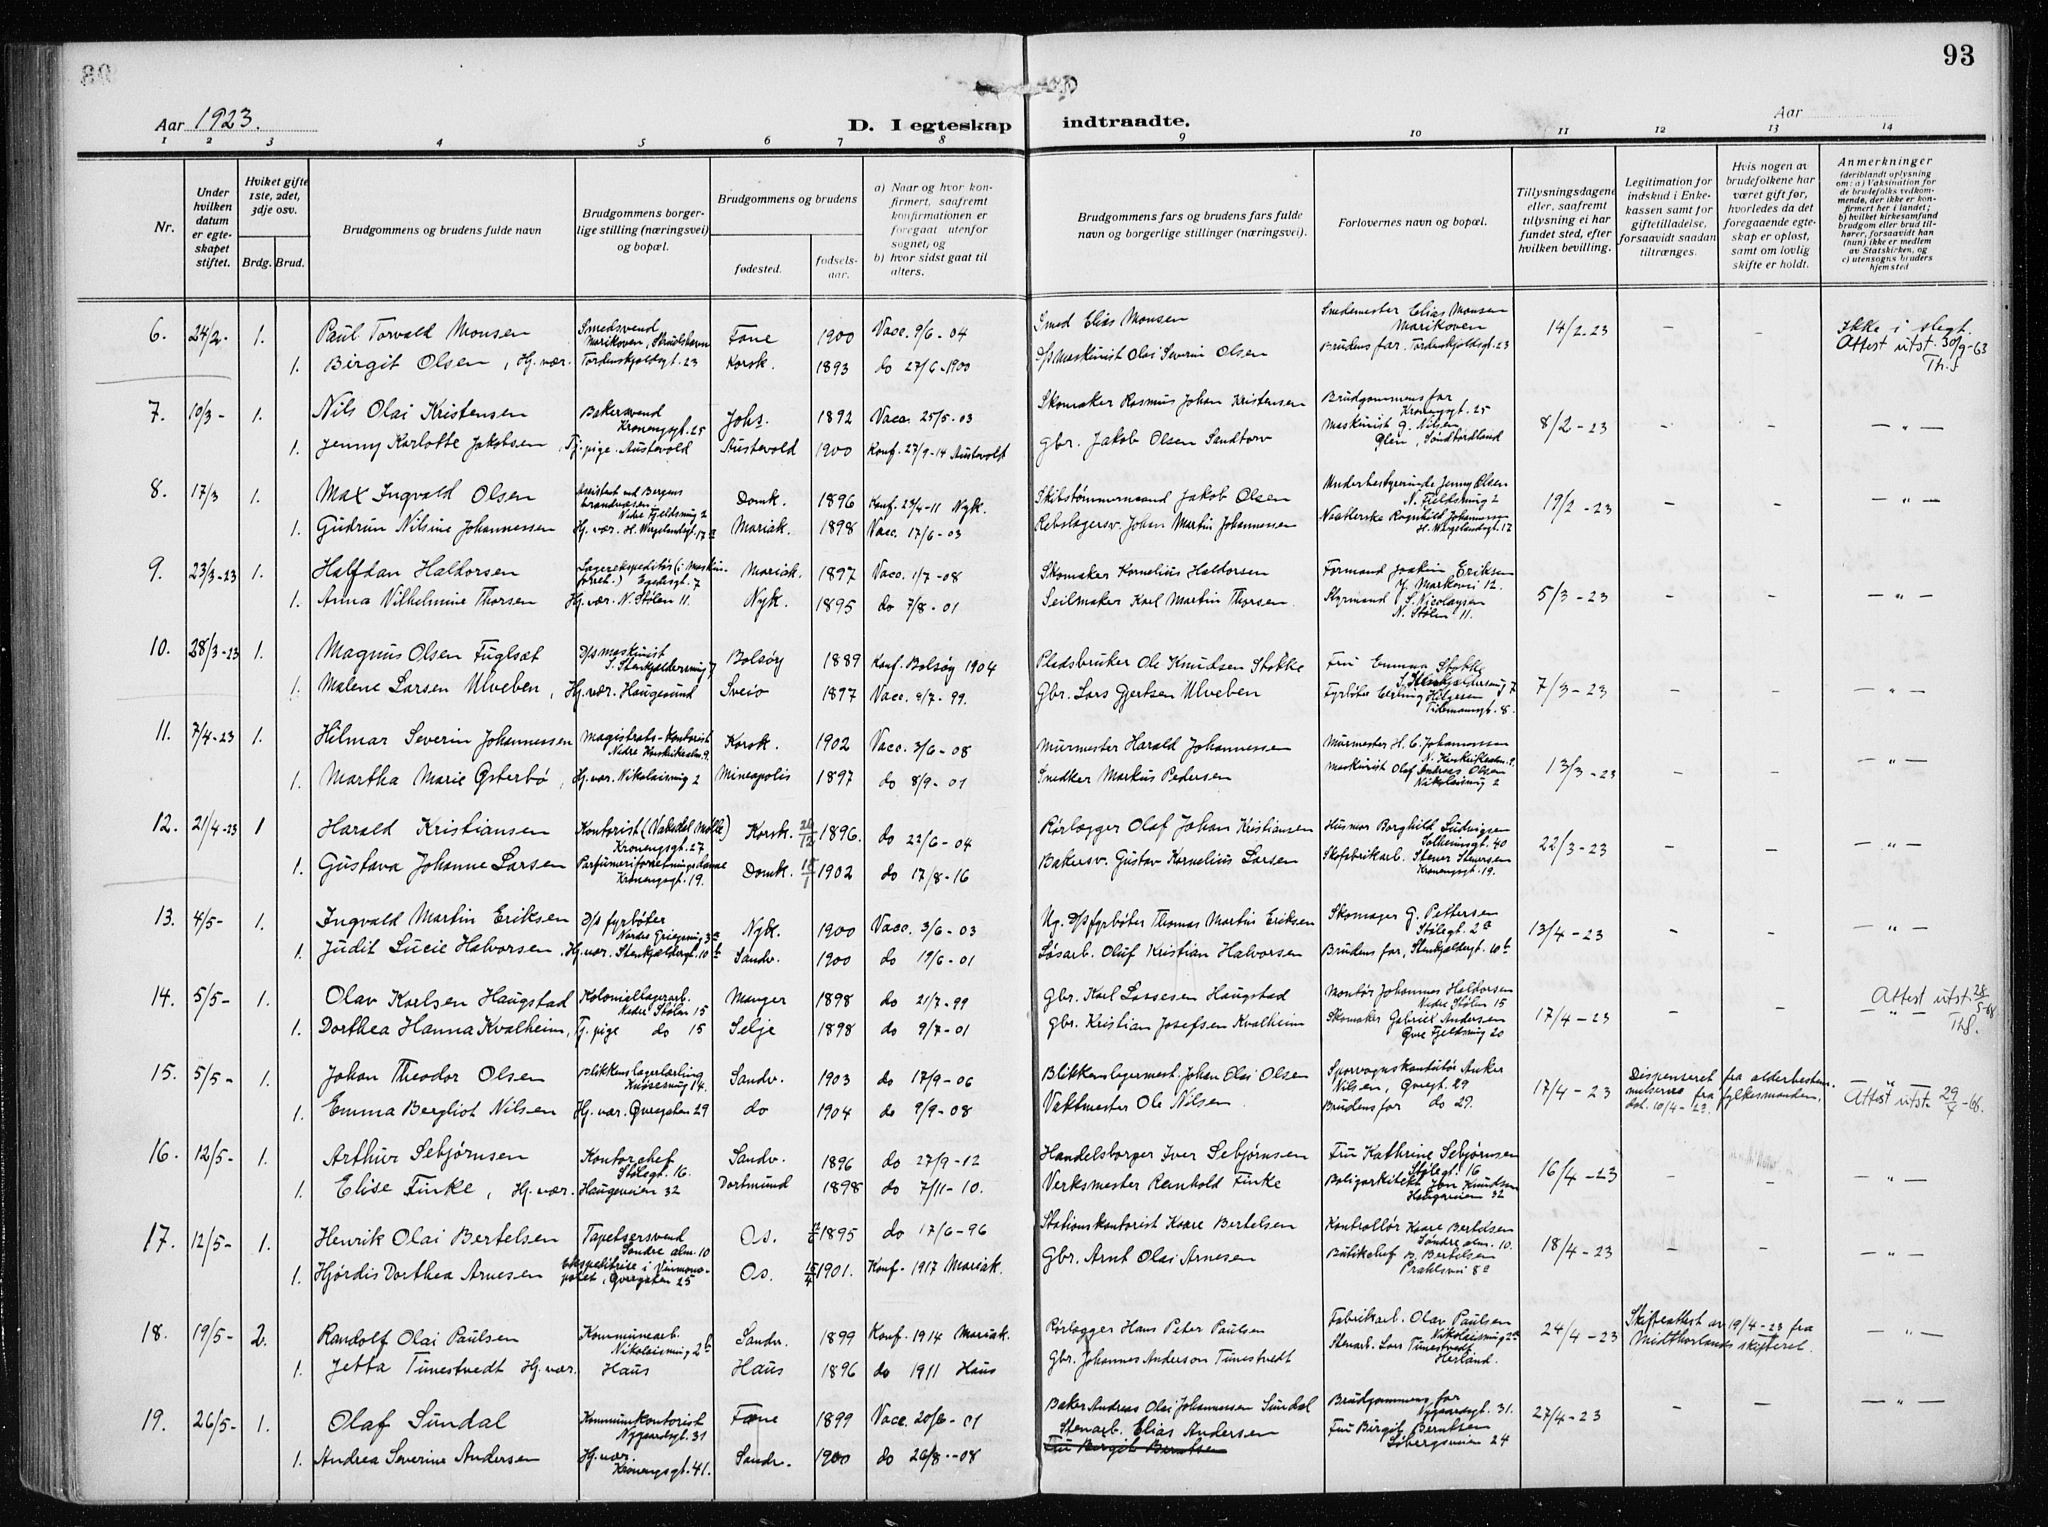 93
Aar 1923.
D. I egteskap indtraadte.
Aar
1 2 3 4 5 6 7 8 9 10 11 12 13 14
Nr.
Under hvilken datum er egteskapet stiftet.
Hviket gifte 1ste, 2det, 3dje osv.
Brdg. Brud.
Brudgommens og brudens fulde navn
Brudgommens borgerlige stilling (næringsvei) og bopæl.
Brudgommens og brudens
fødested.
fødselsaar.
a) Naar og hvor konfirmert, saafremt konfirmationen er foregaat utenfor sognet, og
b) hvor sidst gaat til alters.
Brudgommens fars og brudens fars fulde navn og borgerlige stillinger (næringsvei).
Forlovernes navn og bopæl.
Tillysningsdagene eller, saafremt tillysning ei har fundet sted, efter hvilken bevilling.
Legitimation for indskud i Enkekassen samt for giftetilladelse, forsaavidt saadan tiltrænges.
Hvis nogen av brudefolkene har været gift før, hvorledes da det foregaaende egteskap er opløst, samt om lovlig skifte er holdt.
Anmerkninger (deriblandt oplysning om: a) Vaksination for de brudefolks vedkommende, der ikke er konfirmert her i landet; b) hvilket kirkesamfund brudgom eller brud tilhører, forsaavidt han (hun) ikke er medlem av Statskirken, og c) utensogns bruders hjemsted
6. 24/2- 1. Paul Torvald Monsen Smedsvend Marikoven, Strudshavn Fane 1900 Vacc. 9/6-04 Smed Elias Monsen Smedemester Elias Monsen Marikoven 14/2-23 - - Ikke i slegt. Attest utst. 30/9-63
1. Birgit Olsen, Hj. vær. Tordenskjoldsgt. 23 Korsk. 1893 do 27/6-1900 D/s Maskinist Olai Severin Olsen Brudens far. Tordenskjoldsgt. 23 Th. S
7. 10/3- 1. Nils Olai Kristensen Bakersvend Kroneng­sgt. 25 Johs. 1892 Vacc. 25/5-03 Skomaker Rasmus Johan Kristensen Brudgommens far Krone­ngsgt. 25 8/2-23 - - -"-
1. Jenny Karlotte Jakobsen Tj. pige. Austevold Austevold 1900 Konf. 27/9-14 Austevold Gbr. Jakob Olsen Sandtorv Maskinist G. Nilsen Søndfordland
8. 17/3 1. Max Ingvald Olsen Assistent ved Bergens brandvæsen Nedre Fjeldsmug 2 Domk. 1896 Konf. 23/4-11 Nyk. Skibstømmermand Jakob Olsen Underbestyrerinde Jenny Olsen N. Fjeldsmug 2 19/2-23 - - -"-
1. Gudrun Nilsine Johannessen Hj. vær. H. Wergelandsgt. 17 Mariak. 1898 Vacc. 17/6-03 Rebslagersv. Johan Martin Johannessen Ragnhild Johannessen H. Wergelandsgt. 17
9. 23/3-23 1. Halfdan Haldorsen Lagerekspeditør (i Maskinforret.) Egedesgt. 7 Mariak. 1897 Vacc. 1/7-08 Skomaker Kornelius Haldorsen Formand Joakim Eriksen Y. Markevei 12. 5/3-23 - - -"-
1. Anna Vilhelmine Thorsen Hj. vær. N. Stølen 11. Nyk. 1895 do 7/8-01 Seilmaker Karl Martin Thorsen. Styrmand S. Nicolaysen N. Stølen 11.
10. 28/3-23 1. Magnus Olsen Fuglsæt D/s maskinist S. Stenkjeldersmug 7 Bolsøy 1889 Konf. Bolsøy 1904 Pladsbruker Ole Knudsen Stokke Fru Emma Stokke S. Stenkjeldersmug 7 7/3-23 - - -"-
1. Malene Larsen Ulveben, Hj. vær. Haugesund Sveio 1897 Vacc. 9/7-99. Gbr. Lars Gjertsen Ulveben Fyrbøter Erling Helgesen Tidemannsgt. 8.
11. 7/4-23 1. Hilmar Severin Johannessen Magistrats-kontorist Nedre Korskirkealm. 9. Korsk. 1902 Vacc. 3/6-08 Murmester Harald Johannessen Murmester H. C. Johannessen N. Korskirkealm. 9. 13/3-23 - - -"-
1. Martha Marie Østerbø, Hj. vær. Nikolaismug 2 Mineapolis 1897 do 8/9-01 Snedker Markus Pedersen Maskinist Olaf Andreas Olsen Nikolaismug 2
12. 21/4-23 1 Harald Kristiansen Kontorist (Vaksdal Mølle) Kronengsgt. 27 Korsk. 26/12 1896. do 22/6-04 Rørlægger Olaf Johan Kristiansen Husmor Borghild Ludvigsen Solheimsgt. 40 22/3-23 - - -"-
1. Gustava Johanne Larsen Parfumeriforretningsdame Kronengsgt. 19. Domk. 15/1 1902 do 17/8-16 Bakersv. Gustav Kornelius Larsen Skofabrikarb. Stener Stenersen Kronengsgt. 19.
13. 4/5- 1. Ingvald Martin Eriksen D/s fyrbøter Nordre Griegsmug 3a Nyk. 1900 Vacc. 3/6-03 Ng. D/s fyrbøter Thomas Martin Eriksen Skomager G. Pettersen Stølegt. 2a 13/4-23 - - -"-
1. Judit Lucie Halvorsen. Hj. vær. Stenkjeldergt. 10b Sandv. 1900 do 19/6-01 Løsarb. Oluf Kristian Halvorsen Brudens far, Stenkjeldergt. 10b
14. 5/5- 1. Olav Karlsen Haugstad Koloniallagerarb. Nedre Stølen 15 Manger 1898 do 21/7-99 Gbr. Karl Lassesen Haugstad Montør Johannes Haldorsen Nedre Stølen 15 17/4-23 - - -"- Attest utst. 28/5-68. Th S.
1. Dorthea Hanna Kvalheim, Tj. pige do 15 Selje 1898 do 9/7-01 Gbr. Kristian Josefsen Kvalheim Skomaker Gabriel Andersen Øvre Fjeldsmug 20
15. 5/5- 1. Johan Theodor Olsen Blikkenslagerlærling Knøsesmug 14. Sandv. 1903 do 17/9-06 Blikkenslagermest. Johan Olai Olsen Sporvognskonduktør Anker Nilsen, Øvregt. 29 17/4-23 Dispenseret fra alderbestemmelserne fra fylkesmanden, dat. 10/4-23. -"- Attest utst. 29/4-68.
1. Emma Bergliot Nilsen Hj. vær. Øvregaten 29 do 1904 do 9/9-08 Vaktmester Ole Nilsen. Brudens far do 29.
16. 12/5- 1. Arthur Sebjørnsen Kontorchef Stølegt. 16. Sandv. 1896 do 27/9-12 Handelsborger Iver Sebjørnsen Fru Kathrine Sebjørnsen Stølegt. 16 16/4-23 - - -"-
1. Elise Finke, Hj. vær. Haugeveien 32 Dortmund 1898 do 7/11-10. Verksmester Reinhold Finke Boligarkitekt Knudsen Haugeveien 32
17. 12/5- 1. Henrik Olai Bertelsen Tapetsersvend Søndre alm. 10 Os. 1895 do 17/6-96 Stationskontorist Kaare Bertelsen Kontrollør Kaare Bertelsen Søndre alm. 10. 18/4-23 - - -"-
1. Hjørdis Dorthea Arnesen Ekspeditrise i Vinmonopolet, Øvregaten 25 Os. 15/4 1901. Konf. 1917 Mariak. Gbr. Arnt Olai Arnesen B. Bertelsen Prahlsvei 8a
18. 19/5- 2. Randolf Olai Paulsen Kommunearb. Nikolaismug 2b Sandv. 1899 Konf. 1914 Mariak. Rørlægger Hans Peter Paulsen Fabrikarb. Olav Paulsen Nikolaismug 2a 24/4-23 Skifteattest av 19/4-23 fra Midthorlands skifteret. -"-
1. Jetta Tunestvedt Hj. vær. Haus Haus 1896 do 1911 Haus Gbr. Johannes Anderson Tunestvedt Stenarb. Lars Tunestvedt Herland.
19. 26/5- 1. Olaf Sundal Kommunekontorist Nygaardsgt. 31 Fane 1899 Vacc. 20/6-01 Baker Andreas Olai Johannessen Sundal Brudgommens far Nygaardsgt. 31. 27/4-23 - - -"-
1. Andrea Severine Andersen Hj. vær. Kronengsgt. 41. Sandv. 1900 do 26/8-08 Stenarb. Elias Andersen Fru Birgit Berntsen Fru Birgit Berntsen Søbergsveien 24